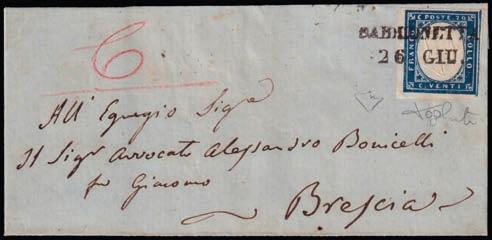 C. POSTE 20
FRANCO
BOLLO
C. VENTI
SABBIONETTA
26 GIU.
All' Egregio Sigr
Il Sigr Avvocato Alessandro Bonicelli
fu Giacomo
Brescia